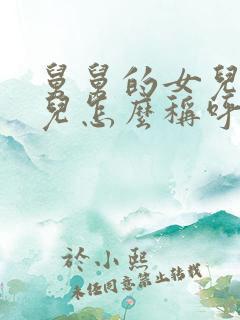 舅舅的女兒
兒怎麼稱呼
於小熙
未經同意禁止轉載